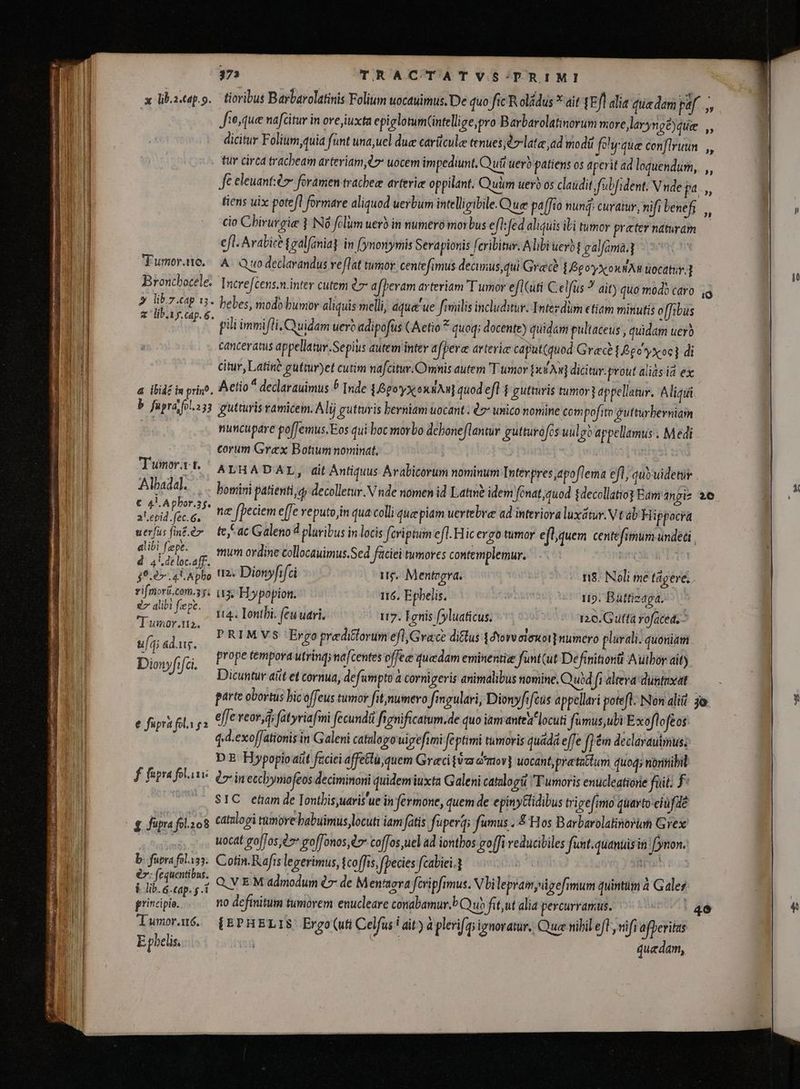 373 TRACTATVS PRIMI
x lib.2.cap.9. tioribus Barbarolatinis Folium uocauimus. De quo sic Roládus x ait {Est alia quædam pas ,,
sio, quæ nascitur in ore, iuxta epiglotum (intellige, pro Barbarolatinorum more, laryngé) quæ ,,
dicitur Folium, quia sunt una, uel duæ carúculæ tenues, & latæ, ad modú foly: quæ construun ,,
tur circa tracheam arteriam, & uocem impediunt. Quú uerò patiens os aperit ad loquendum, ,,
se eleuant: & foramen tracheæ arteriæ oppilant. Quùm uerò os claudit, subsident. Vnde pa ,,
tiens uix potest formare aliquod uerbum intelligibile. Quæ passio nunq̃ curatur, nisi benefi ,,
cio Chirurgiæ } Nó solùm uerò in numero morbus est: sed aliquis ibi tumor præter naturam
est. Arabicè {galsania} in synonymis Serapionis scribitur. Alibi uerò {galsama.}
Tumor.110. A Quo declarandus restat tumor centesimus decimus, qui Græcè {βρογχοκήλη uocatur.}
Bronchocele. Increscens.n. inter cutem & asperam arteriam Tumor est (uti Celsus y ait) quo modò caro 10
y lib.7.cap 13. hebes, modò humor aliquis melli, aquæ'ue similis includitur. Interdùm etiam minutis ossibus
z lib.15.cap.6. pili immisti. Quidam uerò adiposus (Aetio z quoq; docente) quidam pultaceus, quidam uerò
canceratus appellatur. Sepiùs autem inter asperæ arteriæ caput (quod Græcè {βρόγχος} di
citur, Latinè guttur) et cutim nascitur. Omnis autem Tumor {κήλη} dicitur. prout aliàs id ex
a ibidé in prin°. Aetio a declarauimus b Inde {βρογχοκήλη} quod est {gutturis tumor} appellatur. Aliqui
b supra, fol.233 gutturis ramicem. Alij gutturis herniam uocant. & unico nomine composito gutturherniam
nuncupare possemus. Eos qui hoc morbo dehonestantur gutturosos uulgò appellamus. Medi
corum Græx Botium nominat.
Tumor.x t. ALHADAL, ait Antiquus Arabicorum nominum Interpres, apostema est, quò uidetur
Alhadal. homini patienti, q; decolletur. Vnde nomen id Latinè idem sonat, quod {decollatio} Eam angiæ 20
c 4l.Aphor.35. næ speciem esse reputo, in qua colli quæpiam uertebræ ad interiora luxátur. Vt ab Hippocra
2l.epid.sec.6. te, c ac Galeno d pluribus in locis scriptum est. Hic ergo tumor est, quem centesimum undeci
uersus finé. &
alibi sæpè. mum ordine collocauimus. Sed faciei tumores contemplemur.
d 4l.deloc.aff.
5°. & .4l.Apho 112. Dionysisci 115. Mentagra. 118. Noli me tágere.
rismorú.com.35. 113. Hypopion. 116. Ephelis. 119. Buttizaga.
& alibi sæpè. 114. Ionthi. seu uari. 117. Ignis syluaticus. 120. Gutta rosacea.
Tumor.112. PRIMVS Ergo prædictorum est, Græcè dictus {διονυσίσκοι} numero plurali. quoniam
usq; ad.115.
Dionysisci. prope tempora utrinq; nascentes osseæ quædam eminentiæ sunt (ut Definitionú Author ait)
Dicuntur aút et cornua, desumpto à cornigeris animalibus nomine. Quòd si altera duntaxat
parte obortus hic osseus tumor fit, numero singulari, Dionysiscus appellari potest. Non aliú 30
e suprà fol.152 esse reor, q̃ satyriasmi secundú significatum, de quo iam antè e locuti sumus, ubi Exostoseos:
q.d. exossationis in Galeni catalogo uigesimi septimi tumoris quádã esse spém declarauimus.
DE Hypopio aút faciei affectu, quem Græci {ὑπώπιον} uocant, prætactum quoq; nonnihil
f supra fol.111 & in ecchymoseos deciminoni quidem iuxta Galeni catalogú Tumoris enucleatione fuit. f
SIC etiam de Ionthis, uaris'ue in sermone, quem de epinyctidibus trigesimo quarto eiusdé
g supra fol.208 catalogi tumore habuimus, locuti iam satis superq; sumus. g Hos Barbarolatinorum Græx
uocat gossos, & gossonos, & cossos, uel ad ionthos gossi reducibiles sunt. quanuis in synon.
b supra fol.133. Cotin. Rasis legerimus, {cossis, species scabiei.}
& sequentibus.
i lib.6.cap.5.i QVEM admodum & de Mentagra scripsimus. Vbi lepram, uigesimum quintum à Gale
principio. no definitum tumorem enucleare conabamur. h Quò fit, ut alia percurramus. 40
Tumor.116. {EPHELIS Ergo (uti Celsus i ait) à plerisq; ignoratur. Quæ nihil est, nisi asperitas
Ephelis. quædam,